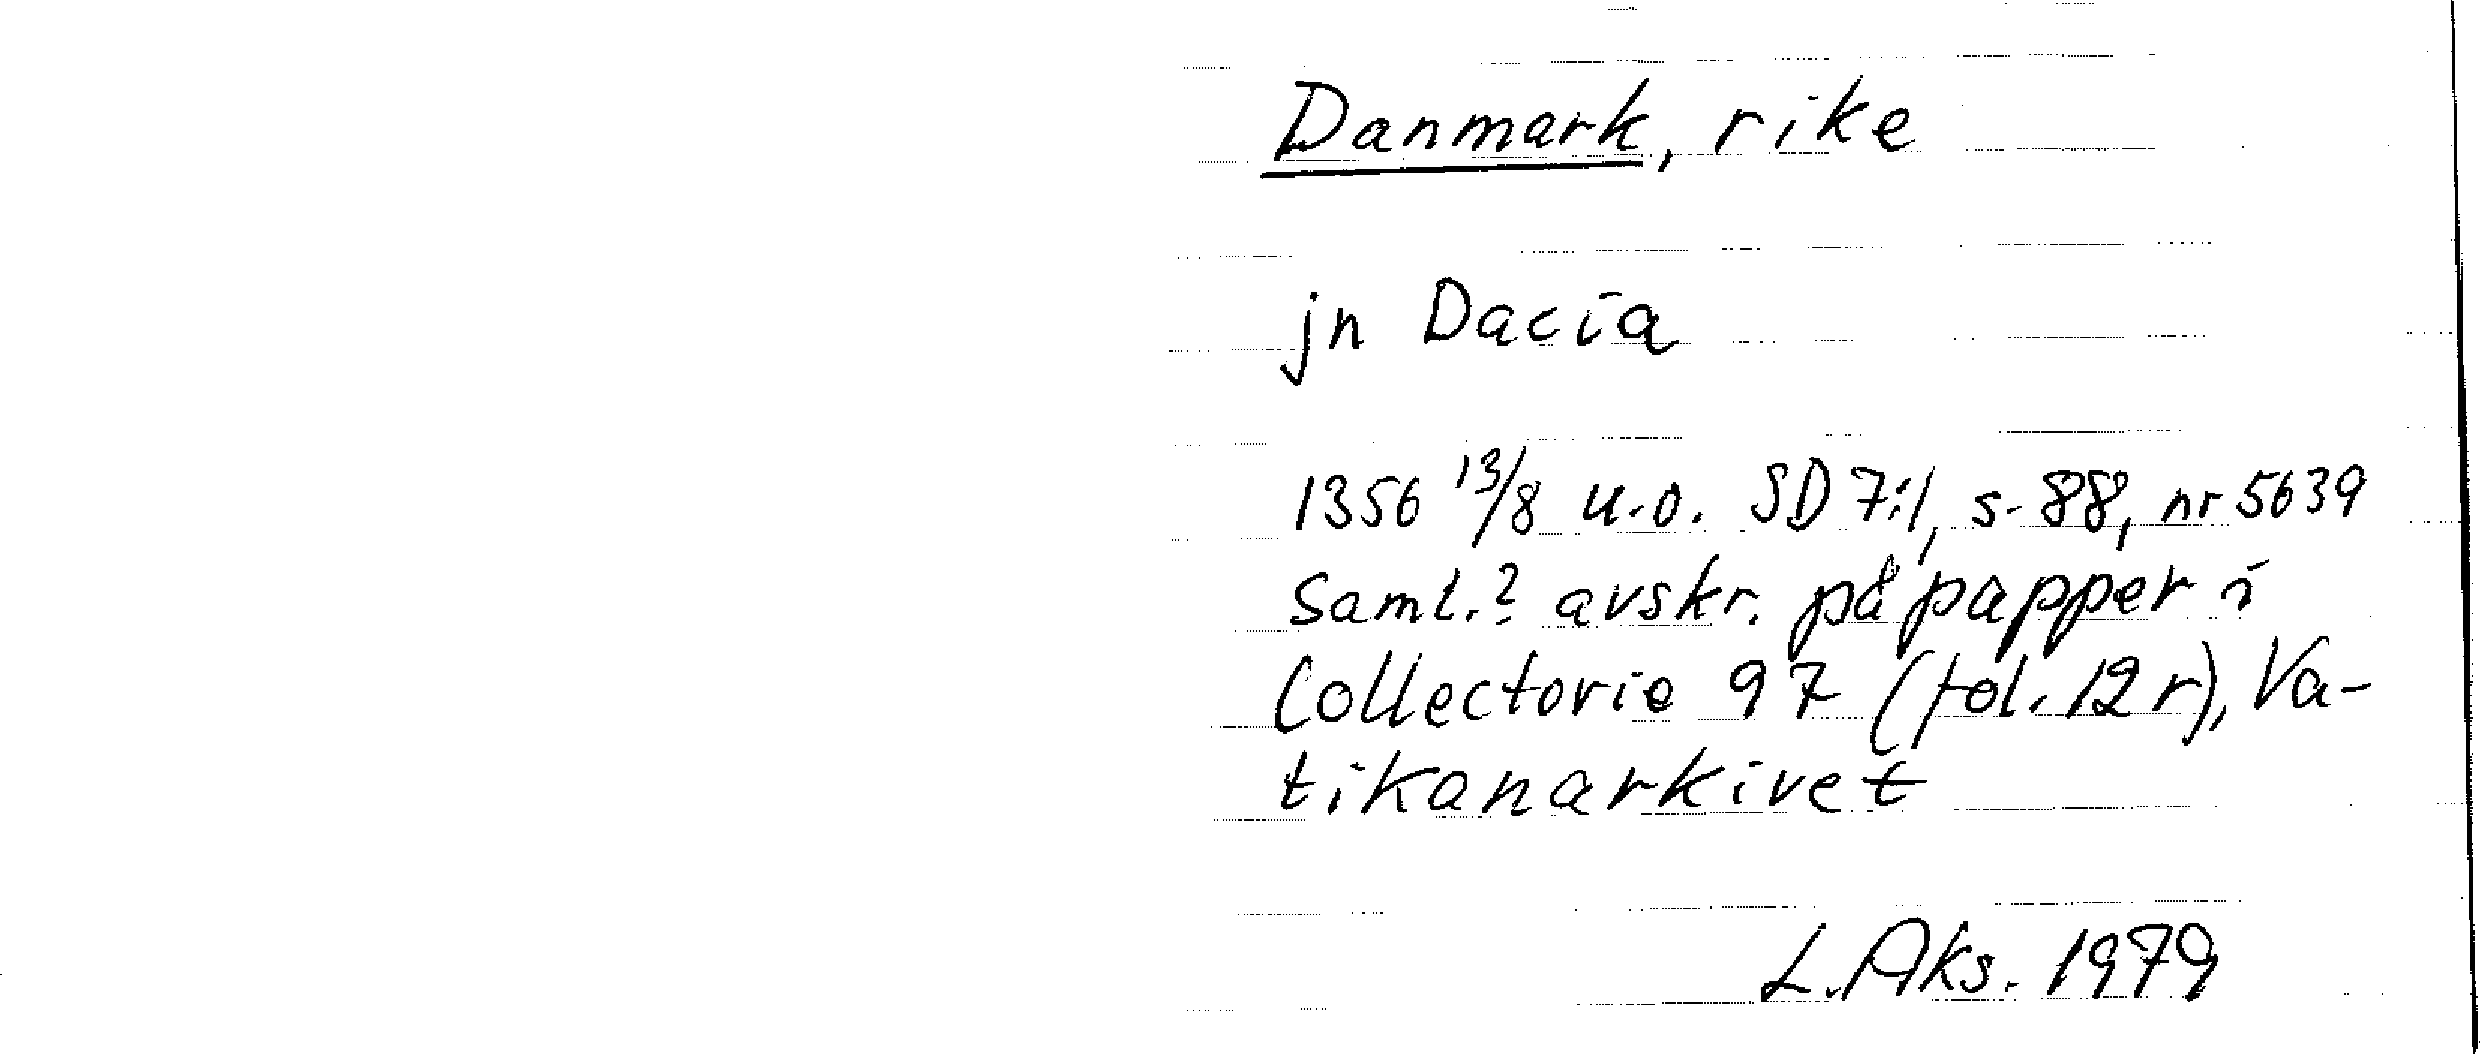 Danmark, rike
jn Dacia
1356 13/8 u.o. SD 7:1, s. 88, nr 5639
Saml.? avskr. på papper i
Collectorie 97 (fol. 12 r), Va-
tikanarkivet
L. Aks. 1979